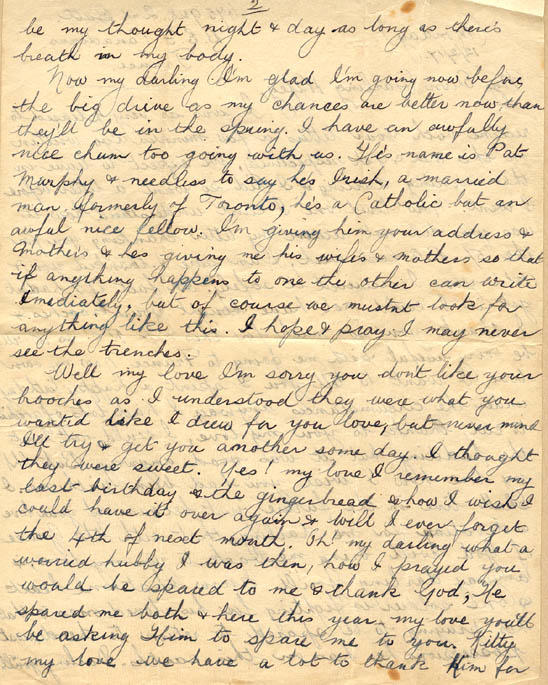 2
be my thought night & day as long as there's
breath in my body.
Now my darling I'm glad I'm going now before
the big drive as my chances are better now than
they'll be in the spring. I have an awfully
nice chum too going with us. His name is Pat
Murphy & needless to say he's Irish, a married
man formerly of Toronto, he's a Catholic but an
awful nice fellow. I'm giving him your address &
Mother's & hes giving me his wife's & mothers so that
if anything happens to one the other can write
imediately. but of course we mustnt look for
anything like this. I hope & pray I may never
see the trenches.
Well my love I'm sorry you don't like your
hooches as I understood they were what you
wanted like I drew for you love, but never mind
I'll try & get you another some day. I thought
they were sweet. Yes! my love I remember my
last birthday & the gingerbread & how I wish I
could have it over again & will I ever forget
the 4th of next month. Oh! my darling what a
worried hubby I was then, how I prayed you
would be spared to me & thank God, He
spared me both & here this year my love you'll
be asking Him to spare me to you. Kitty
my love we have a lot to thank Him for